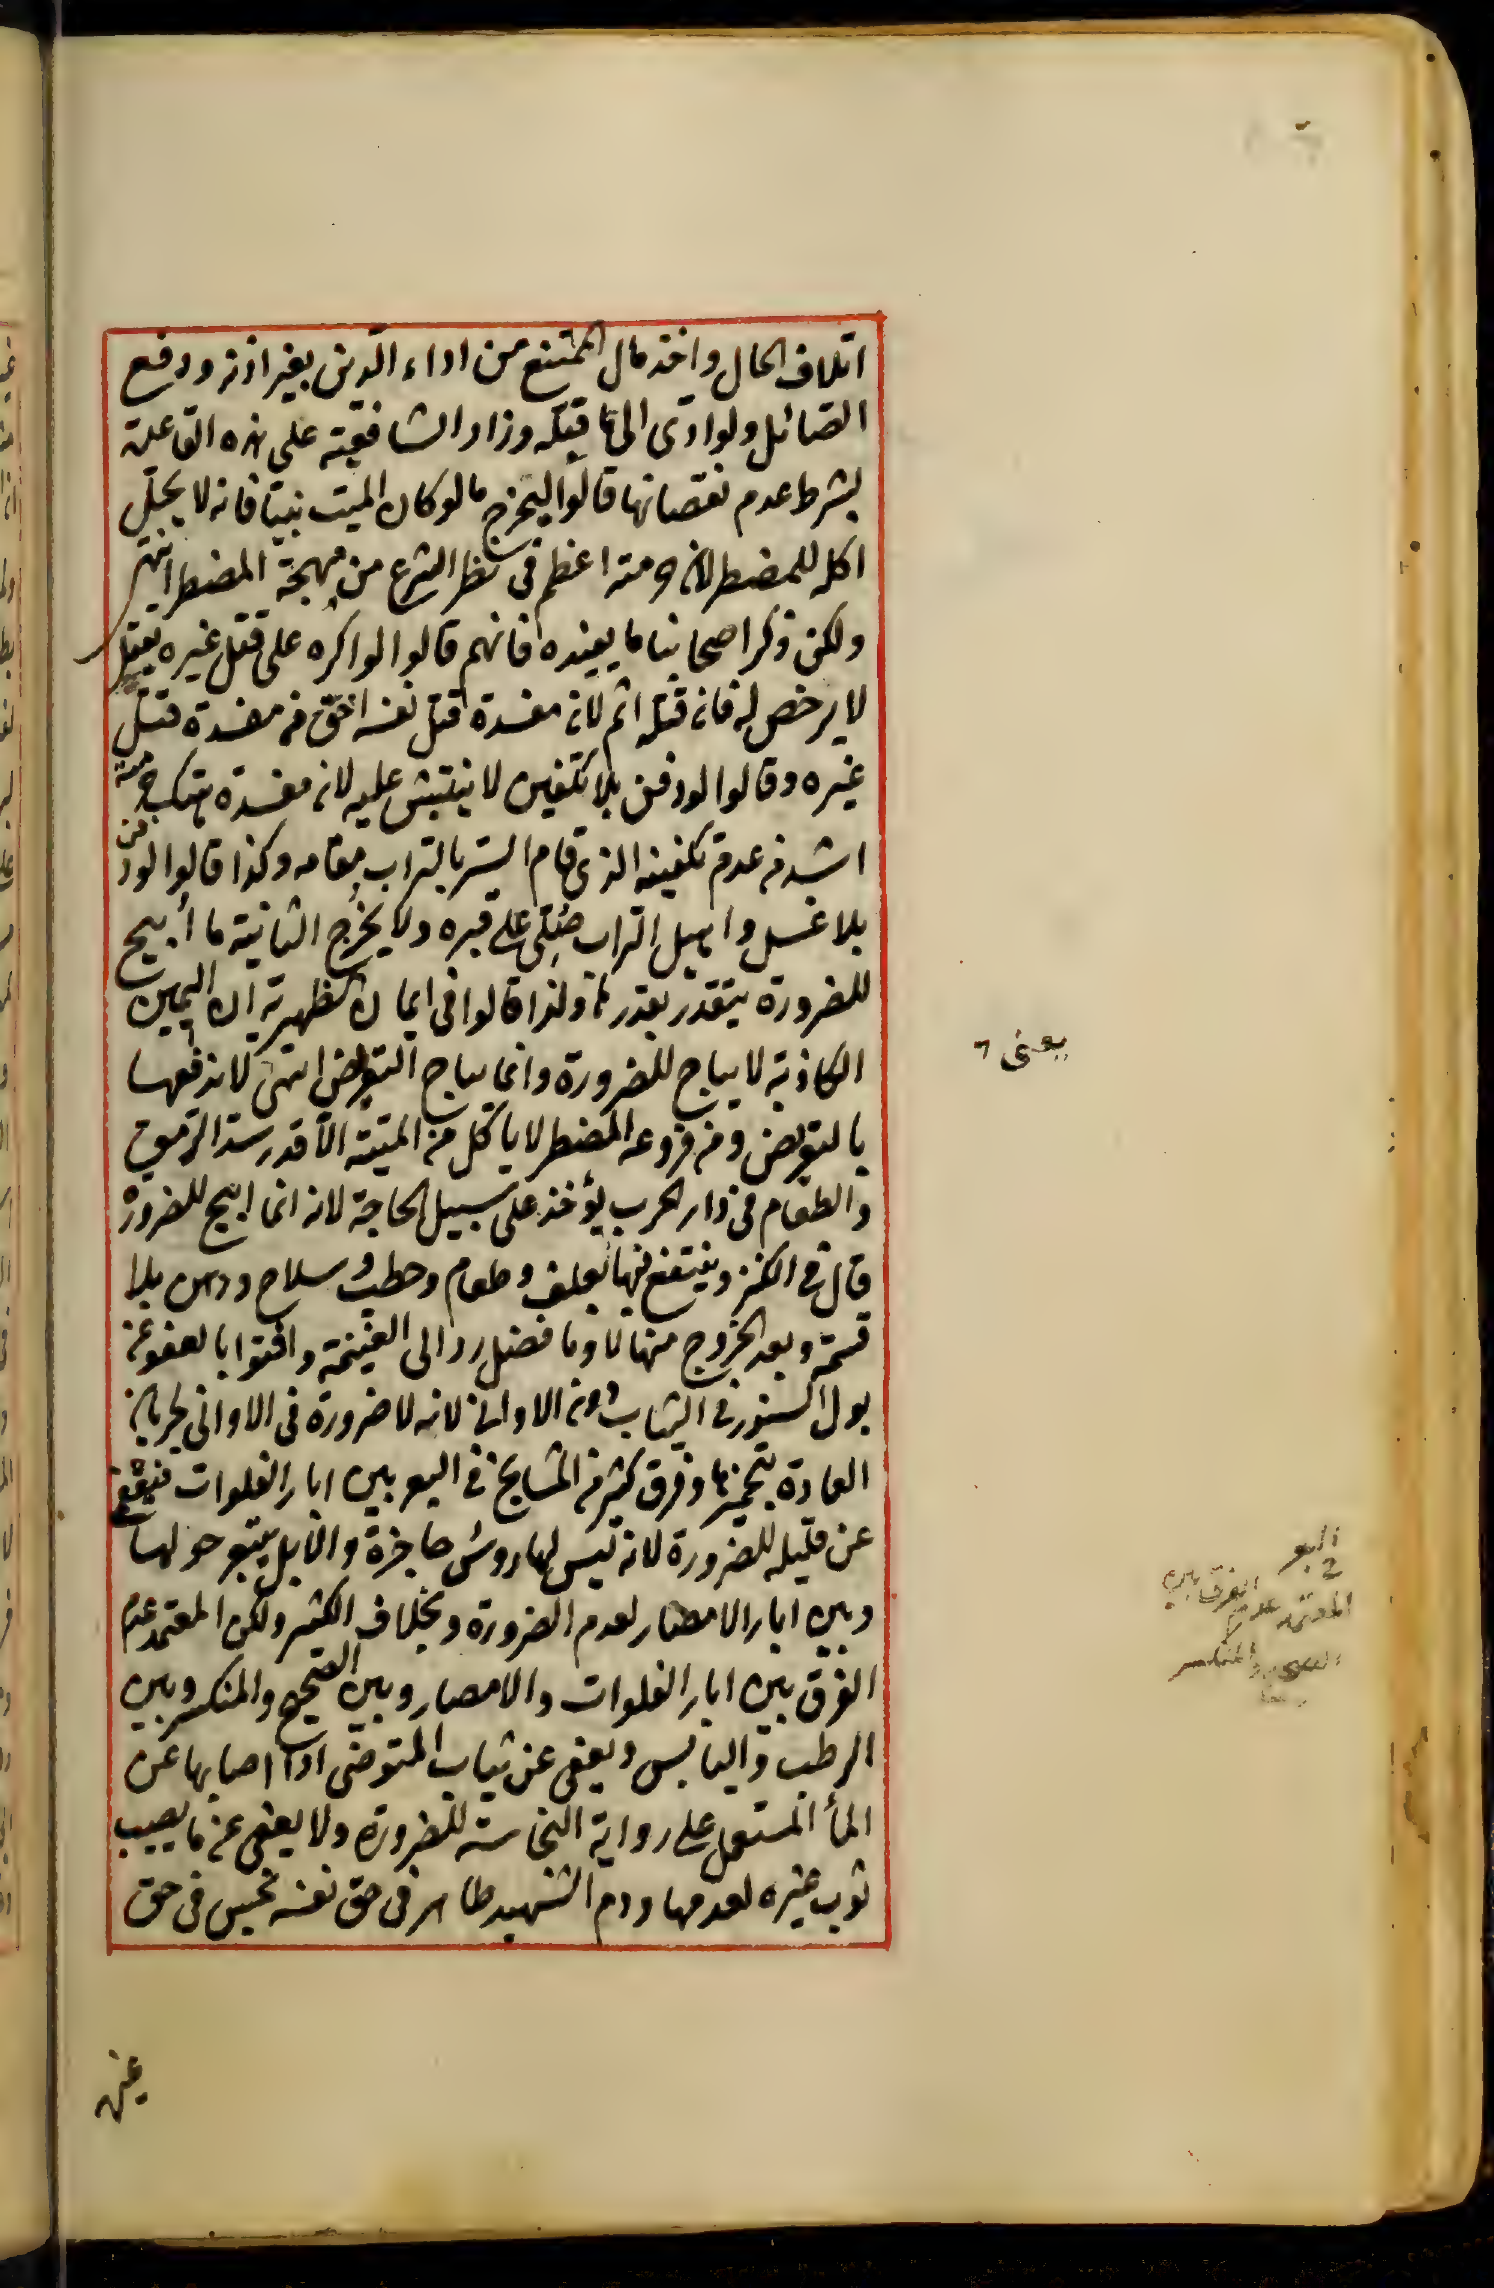 اتلاف المال واخذ مال الممتنع من اداء الدين بغير اذنه ودفع
الصائل ولو ادى الى قتله وزاد الشافعية على هذه القاعدة
بشرط عدم نقصانها قالوا ليخرج ما لو كان الميت نبيا فانه لا يحل
اكله للمضطر لان حرمته اعظم فى نظر الشرع من مهجة المضطر انتهى
ولكن ذكر اصحابنا ما يفيده فانهم قالوا لو اكره على قتل غيره بقتل
لا يرخص له فان قتله اثم لان مفسدة قتل نفسه اخف من مفسدة قتل
غيره وقالوا لو دفن بلا تكفين لا ينبش عليه لان مفسدة هتك حرمته
اشد من عدم تكفينه الذى قام الستر بالتراب مقامه وكذا قالوا لو دفن
بلا غسل واهيل التراب صلى على قبره ولا يخرج الثانية ما أبيح
للضرورة يتقدر بقدرها ولذا قالوا فى ايمان الظهيرية ان اليمين
الكاذبة لا يباح للضرورة وانما يباح التعريض انتهى لاندفعها
بالتعريض ومن فروعه المضطر لا ياكل من الميتة الا قدر سد الرمق
والطعام فى دار الحرب يؤخذ على سبيل الحاجة لانه انما ابيح للضرورة
قال فى الكنز وينتفع فيها بعلف وطعام وحطب وسلاح ودهن بلا
قسمة وبعد الخروج منها لا وما فضل رد الى الغنيمة وافتوا بالعفو عن
بول السنور فى الثياب دون الاوانى لانه لا ضرورة فى الاوانى لجريان
العادة بتخميرها وفرق كثير من المشايخ فى البعر بين ابار الفلوات فيعفى
عن قليله للضرورة لانه ليس لها روس حاجزة والابل تبعر حولها
وبين ابار الامصار لعدم الضرورة وبخلاف الكثير ولكن المعتمد عدم
الفرق بين ابار الفلوات والامصار وبين الصحيح والمنكسر وبين
الرطب واليابس ويعفى عن ثياب المتوضى اذا اصابها عن
المأ المستعمل على رواية النجاسة للضرورة ولا يعفى عن ما يصيب
ثوب غيره لعدمها ودم الشهيد طاهر فى حق نفسه نجس فى حق
يعنى
البعر
المعتمد عدم الفرق بين
الصحيح والمنكسر
غيره